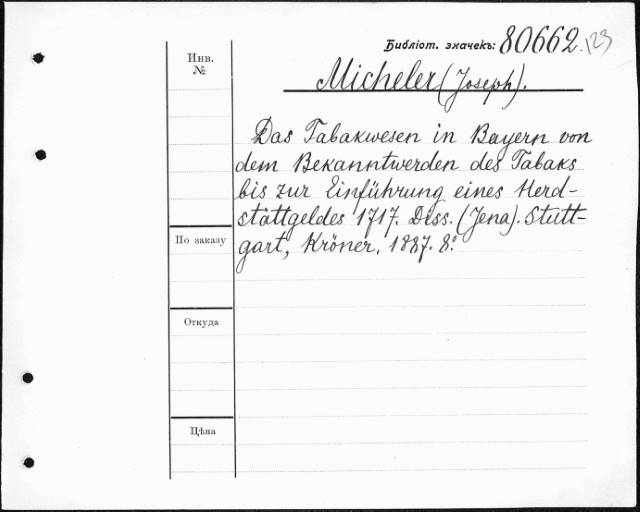 Библіот. значекъ: 80662. 123
Инв.
№
Micheler (Joseph).
Das Tabakwesen in Bayern von
dem Bekanntwerden des Tabaks
bis zur Einführung eines Herd-
stättgeldes 1717. Diss. (Jena). Stutt-
gart, Kröner, 1887. 8.º
По заказу
Откуда
Цѣна